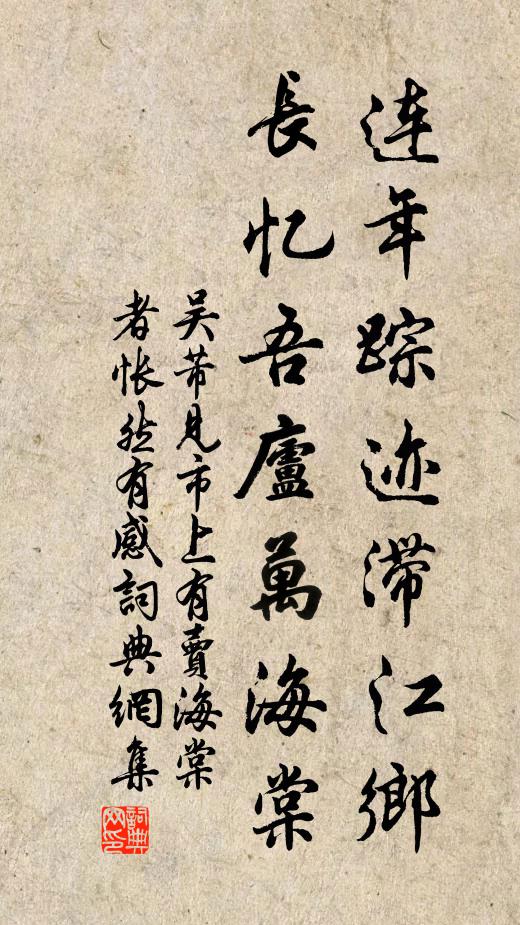 连年踪迹滞江乡
長忆吾廬萬海棠
吴芾見市上有賣海棠
者怅然有感詞典網集
詞典网印